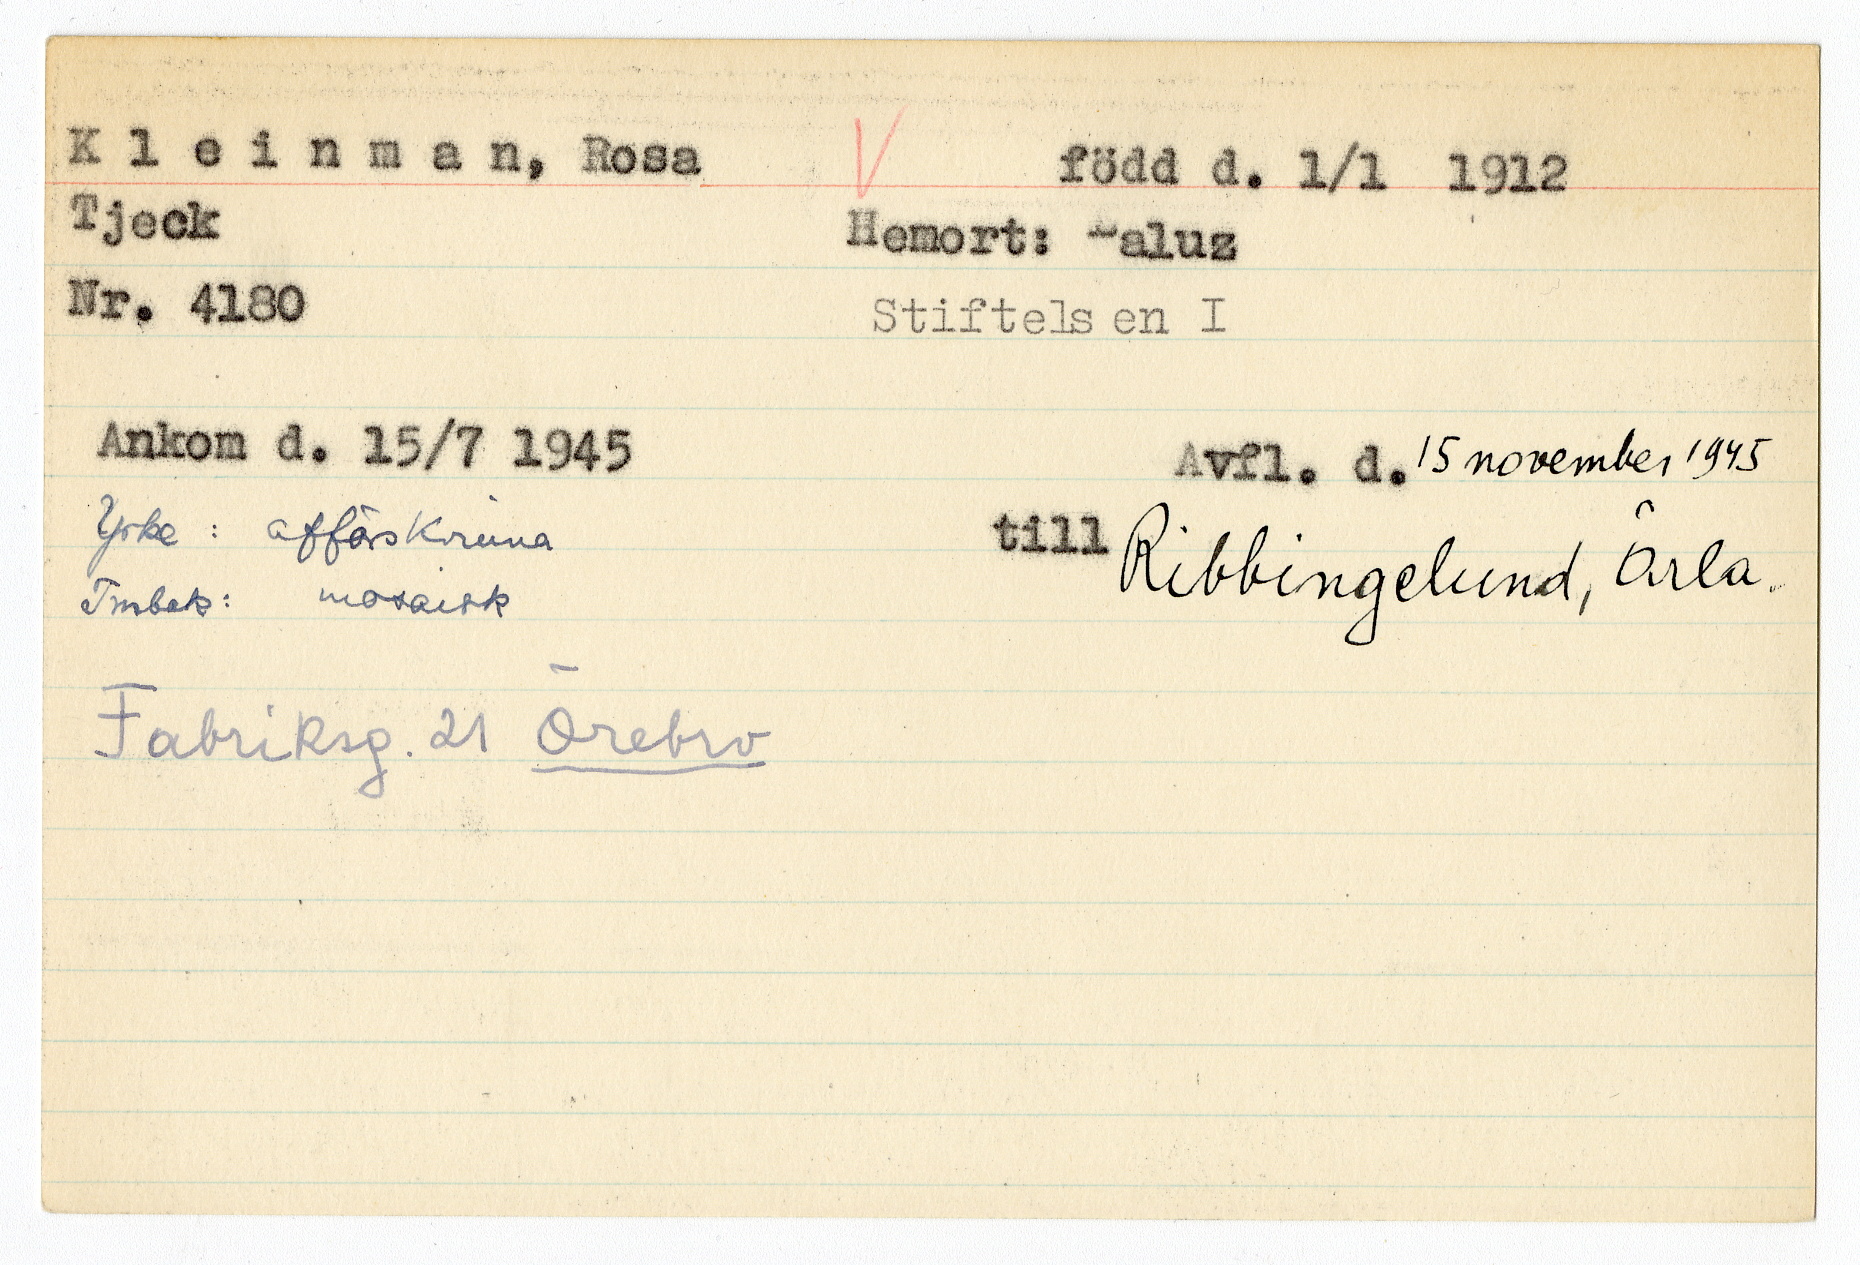 Kleinman, Rosa V född d. 1/1 1912
Tjeck Hemort:
Nr. 4180 Stiftelsen I
Ankom d. 15/7 1945 Avfl. d. 15 november 1945
Yrke : affärskvinna till Ribbingelund, Ärla.
Trosbek: mosaisk
Fabriksg. 21 Örebro